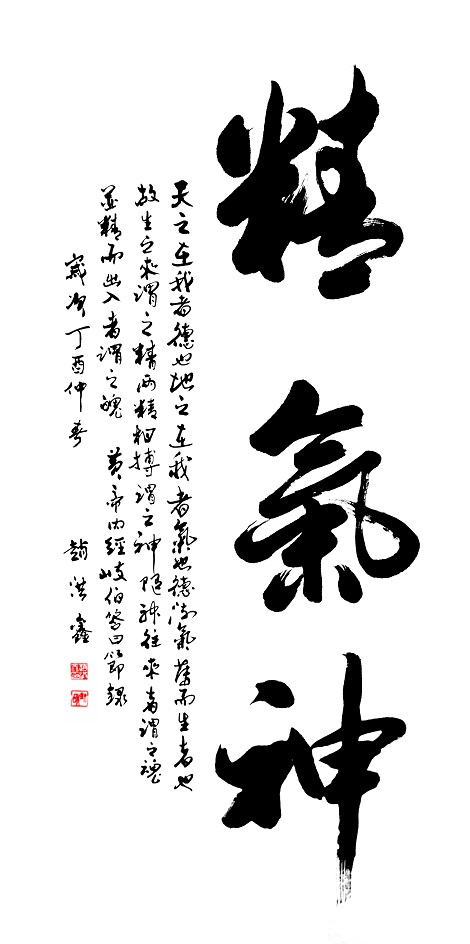 精氣神
天之在我者德也地之在我者氣也德流氣薄而生者也
故生之來謂之精兩精相搏謂之神隨神往來者謂之魂
並精而出入者謂之魄 黃帝內經岐伯答曰節錄
歲次丁酉仲春
趙洪鑫